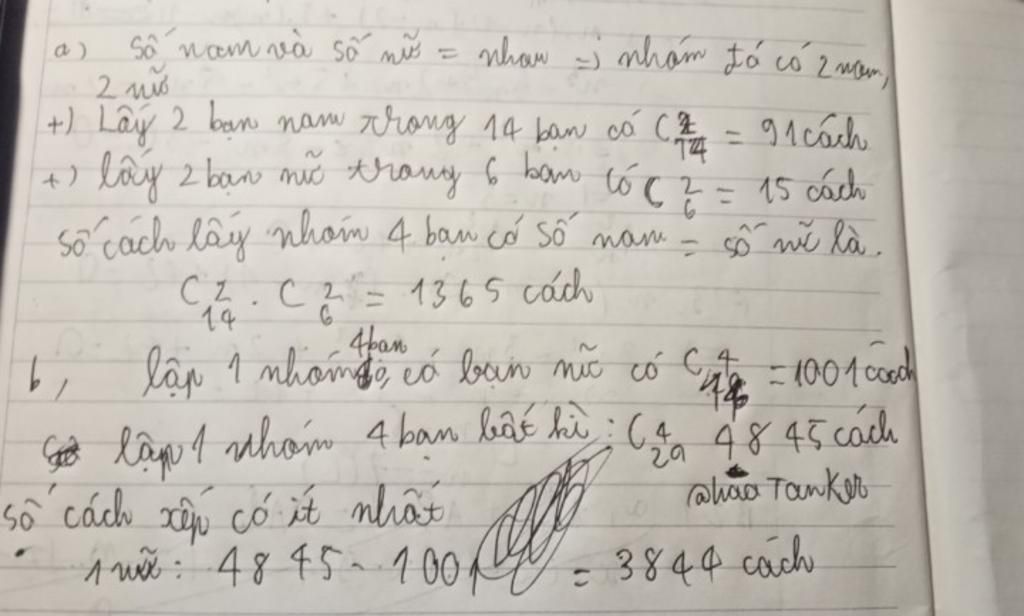 a) số nam và số nữ = nhau => nhóm đó có 2 nam,
2 nữ
+) Lấy 2 bạn nam trong 14 bạn có C 2 14 = 91 cách
+) lấy 2 bạn nữ trong 6 bạn có C 2 6 = 15 cách
số cách lấy nhóm 4 bạn có số nam = số nữ là.
C 2 14 . C 2 6 = 1365 cách
b, lập 1 nhóm 4 bạn có bạn nữ có C 4 14 = 1001 cách
lập 1 nhóm 4 bạn bất kì : C 4 20 4845 cách
@hao Tanker
số cách xếp có ít nhất
1 nữ : 4845 - 1001 = 3844 cách